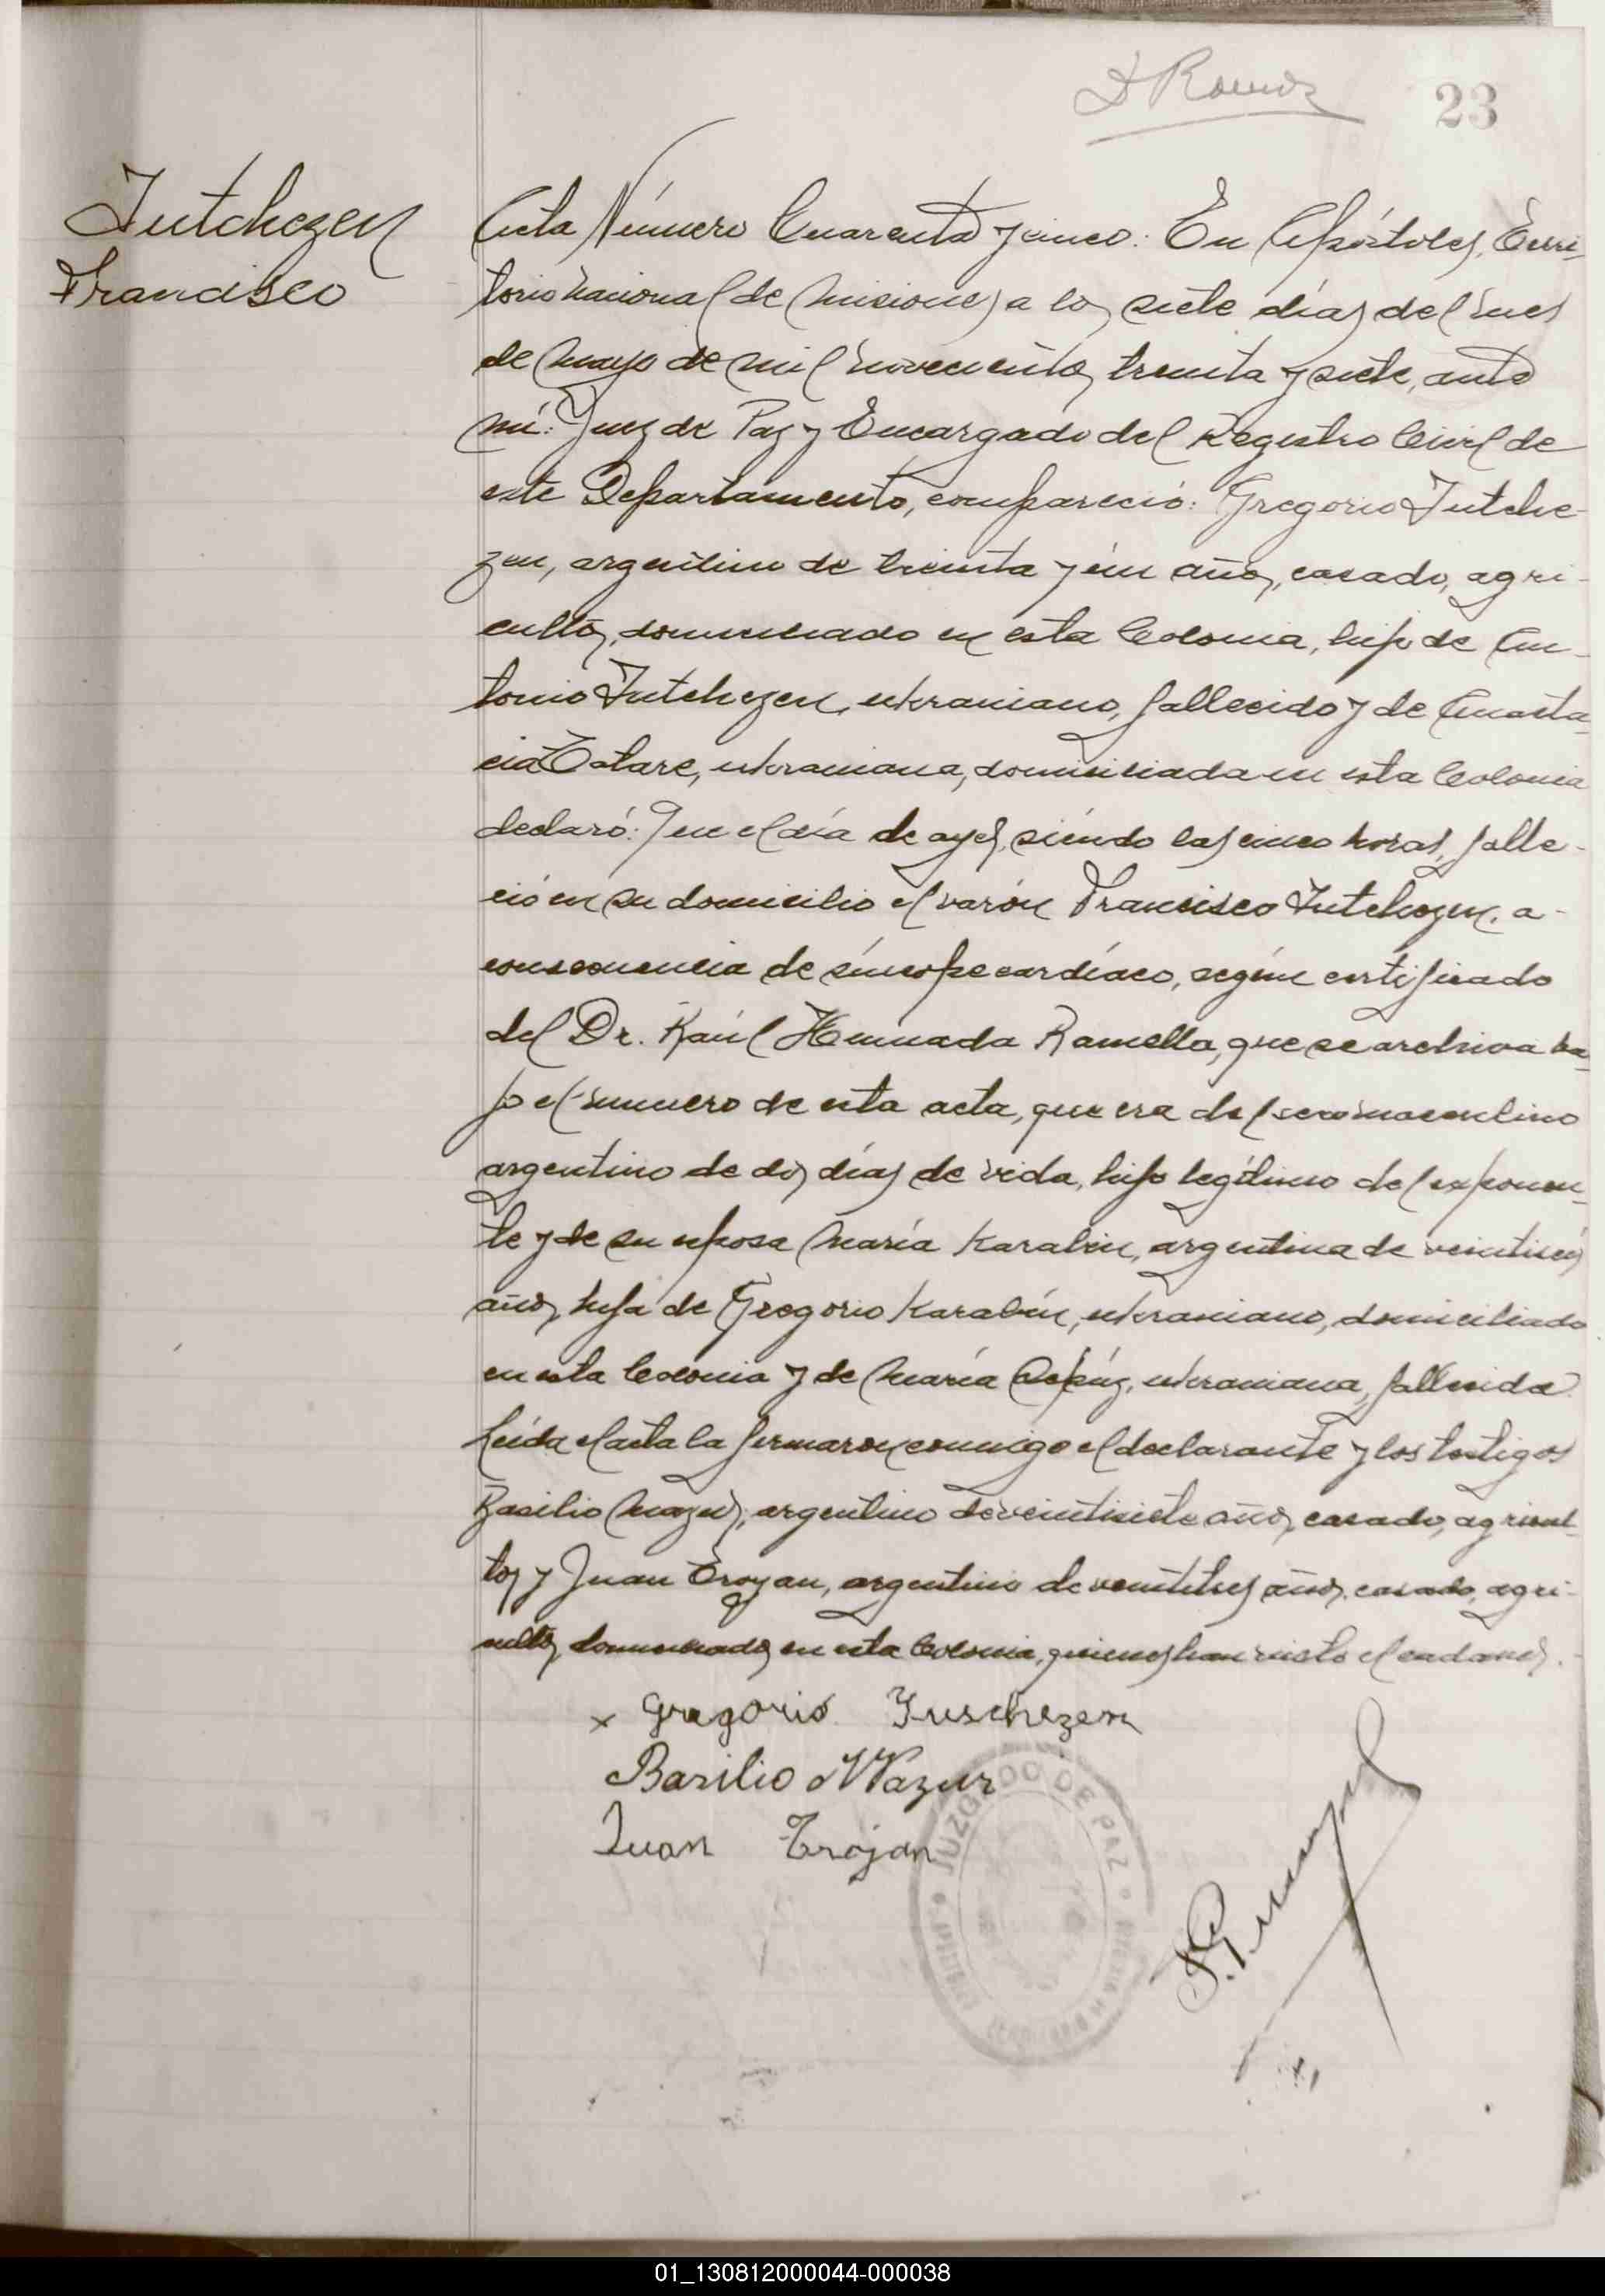 23
Jutchezen
Francisco
Acta Número Cuarenta y cinco: En Apóstoles, Terri-
torio Nacional de Misiones, a los siete días del mes
de Mayo de mil novecientos treinta y siete, ante
mí: Juez de Paz y Encargado del Registro Civil de
este Departamento, compareció: Gregorio Jutche-
zen, argentino de treinta y un años, casado, agri-
cultor, domiciliado en esta Colonia, hijo de An-
tonio Jutchezen, ukraniano, fallecido y de Anasta-
cia Tatare, ukraniana, domiciliada en esta Colonia
declaró: Que el día de ayer, siendo las cinco horas, falle-
ció en su domicilio el varón Francisco Jutchezen, a
consecuencia de síncope cardíaco, según certificado
del Dr. Raúl Ramella, que se archiva ba-
jo el número de esta acta, que era del sexo masculino
argentino de dos días de vida, hijo legítimo del exponen-
te y de su esposa María Karabin, argentina de veintiseis
años, hija de Gregorio Karabin, ukraniano, domiciliado
en esta Colonia y de María ukraniana, fallecida.
Leída el acta la firmaron conmigo el declarante y los testigos
Basilio Mazur, argentino de veintisiete años, casado, agricul-
tor y Juan Troyan, argentino de veintitres años, casado, agri-
cultor, domiciliados en esta Colonia, quienes han visto el cadaver.
x Gregorio Juschezen
Basilio Mazur
Juan Trojan
JUZGADO DE PAZ
01_130812000044-000038